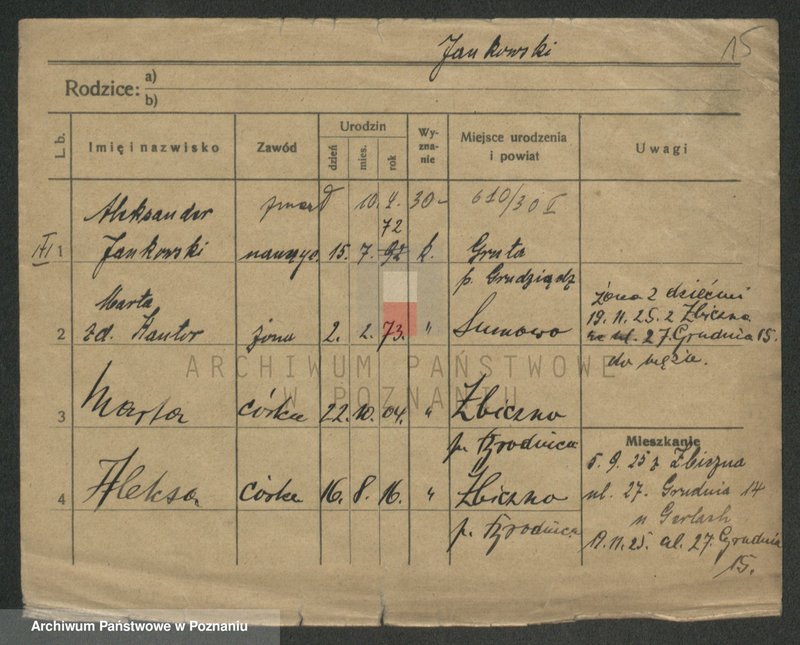 Jankowski
15
Rodzice: a)
b)
L. b.
Imię i nazwisko
Zawód
Urodzin
dzień
mies.
rok
Wy-
zna-
nie
Miejsce urodzenia
i powiat
Uwagi
Aleksander zmarł 10. 4. 30 610/30 I
72
1 Jankowski nauczyc. 15. 7. 92 k. Gruta
p. Grudziądz
Marta
2 zd. Kantor żona 2. 2. 73. " Sumowo
żona z dziećmi
19. 11. 25. z Zbiczna
ul. 27 Grudnia 15.
do męża.
3 Marta córka 22. 10. 04. " Zbiczno
p. Brodnica
4 Aleksa córka 16. 8. 16. " Zbiczno
p. Brodnica
Mieszkanie
5. 9. 25 z Zbiczna
ul. 27. Grudnia 14
u Gerlach
17. 11. 25. ul. 27. Grudnia
15.
ARCHIWUM PAŃSTWOWE
W POZNANIU
Archiwum Państwowe w Poznaniu